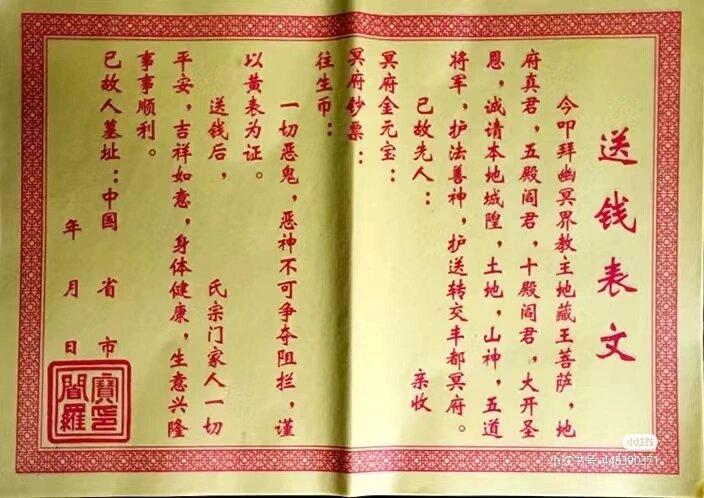 送钱表文
今叩拜幽冥界教主地藏王菩萨，地
府真君，五殿阎君，十殿阎君，大开圣
恩，诚请本地城隍，土地，山神，五道
将军，护法善神，护送转交丰都冥府。
已故先人： 亲收
冥府金元宝：
冥府钞票：
往生币：
一切恶鬼，恶神不可争夺阻拦，谨
以黄表为证。
送钱后， 氏宗门家人一切
平安，吉祥如意，身体健康，生意兴隆
事事顺利。
已故人墓址：中国 省 市
年 月 日
阎罗宝印
小红书
小红书号:448390371